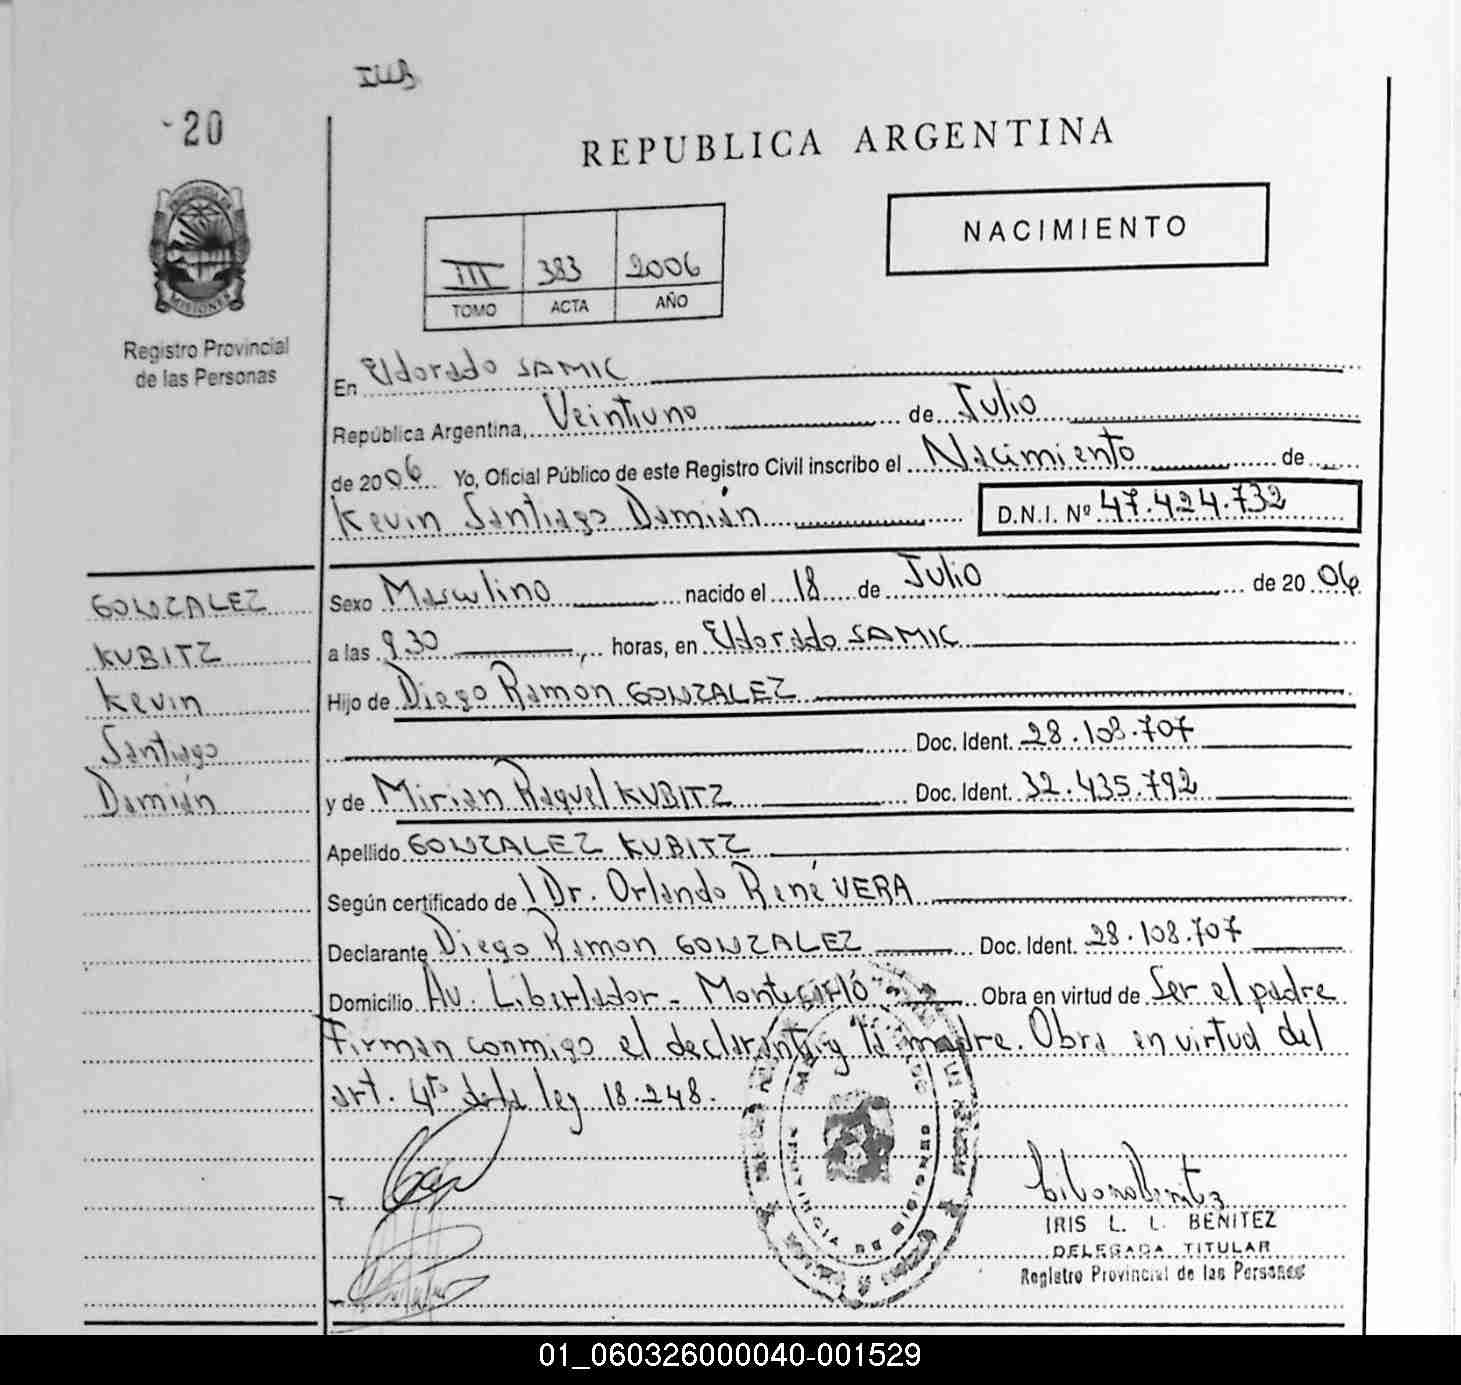 20
REPUBLICA ARGENTINA
NACIMIENTO
III 383 2006
TOMO ACTA AÑO
PROVINCIA DE
MISIONES
Registro Provincial
de las Personas
En Eldorado SAMIC
República Argentina, Veintiuno de Julio
de 2006 Yo, Oficial Público de este Registro Civil inscribo el Nacimiento de
Kevin Santiago Damián D.N.I. Nº 47.424.732
GONZALEZ
KUBITZ
Kevin
Santiago
Damián
Sexo Masculino nacido el 18 de Julio de 2006
a las 9.30 horas, en Eldorado SAMIC
Hijo de Diego Ramón GONZALEZ
Doc. Ident. 28.108.707
y de Mirian Raquel KUBITZ Doc. Ident. 32.435.792
Apellido GONZALEZ KUBITZ
Según certificado de l Dr. Orlando René VERA
Declarante Diego Ramon GONZALEZ Doc. Ident. 28.108.707
Domicilio Av. Libertador - Montecarló Obra en virtud de Ser el padre
Firman conmigo el declarante y la madre. Obra en virtud del
art. 4to de la ley 18.248.
IRIS L. L. BENITEZ
DELEGADA TITULAR
Registro Provincial de las Personas
01_060326000040-001529